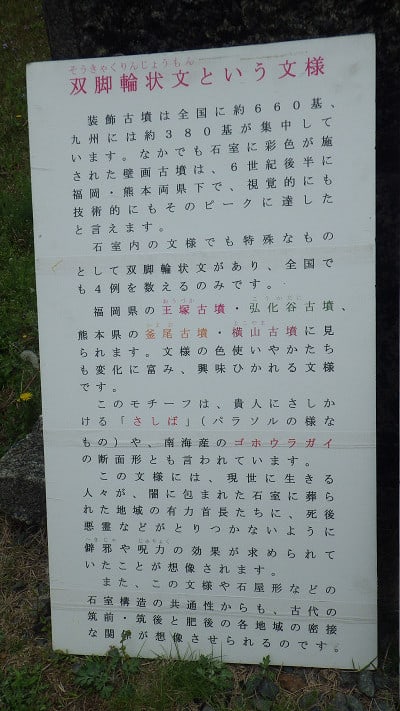 そうきゃくりんじょうもん
双脚輪状文という文様
装飾古墳は全国に約６６０基、
九州には約３８０基が集中して
います。なかでも石室に彩色が施
された壁画古墳は、６世紀後半に
福岡・熊本両県下で、視覚的にも
技術的にもそのピークに達した
と言えます。
石室内の文様でも特殊なもの
として双脚輪状文があり、全国で
も４例を数えるのみです。
福岡県の王塚古墳・弘化谷古墳、
熊本県の釜尾古墳・横山古墳に見
られます。文様の色使いやかたち
も変化に富み、興味ひかれる文様
です。
このモチーフは、貴人にさしか
ける「さしば」（パラソルの様な
もの）や、南海産のゴホウラガイ
の断面形とも言われています。
この文様には、現世に生きる
人々が、闇に包まれた石室に葬ら
れた地域の有力首長たちに、死後
悪霊などがとりつかないように
僻邪や呪力の効果が求められて
いたことが想像されます。
また、この文様や石屋形などの
石室構造の共通性からも、古代の
筑前・筑後と肥後の各地域の密接
な関係が想像させられるのです。